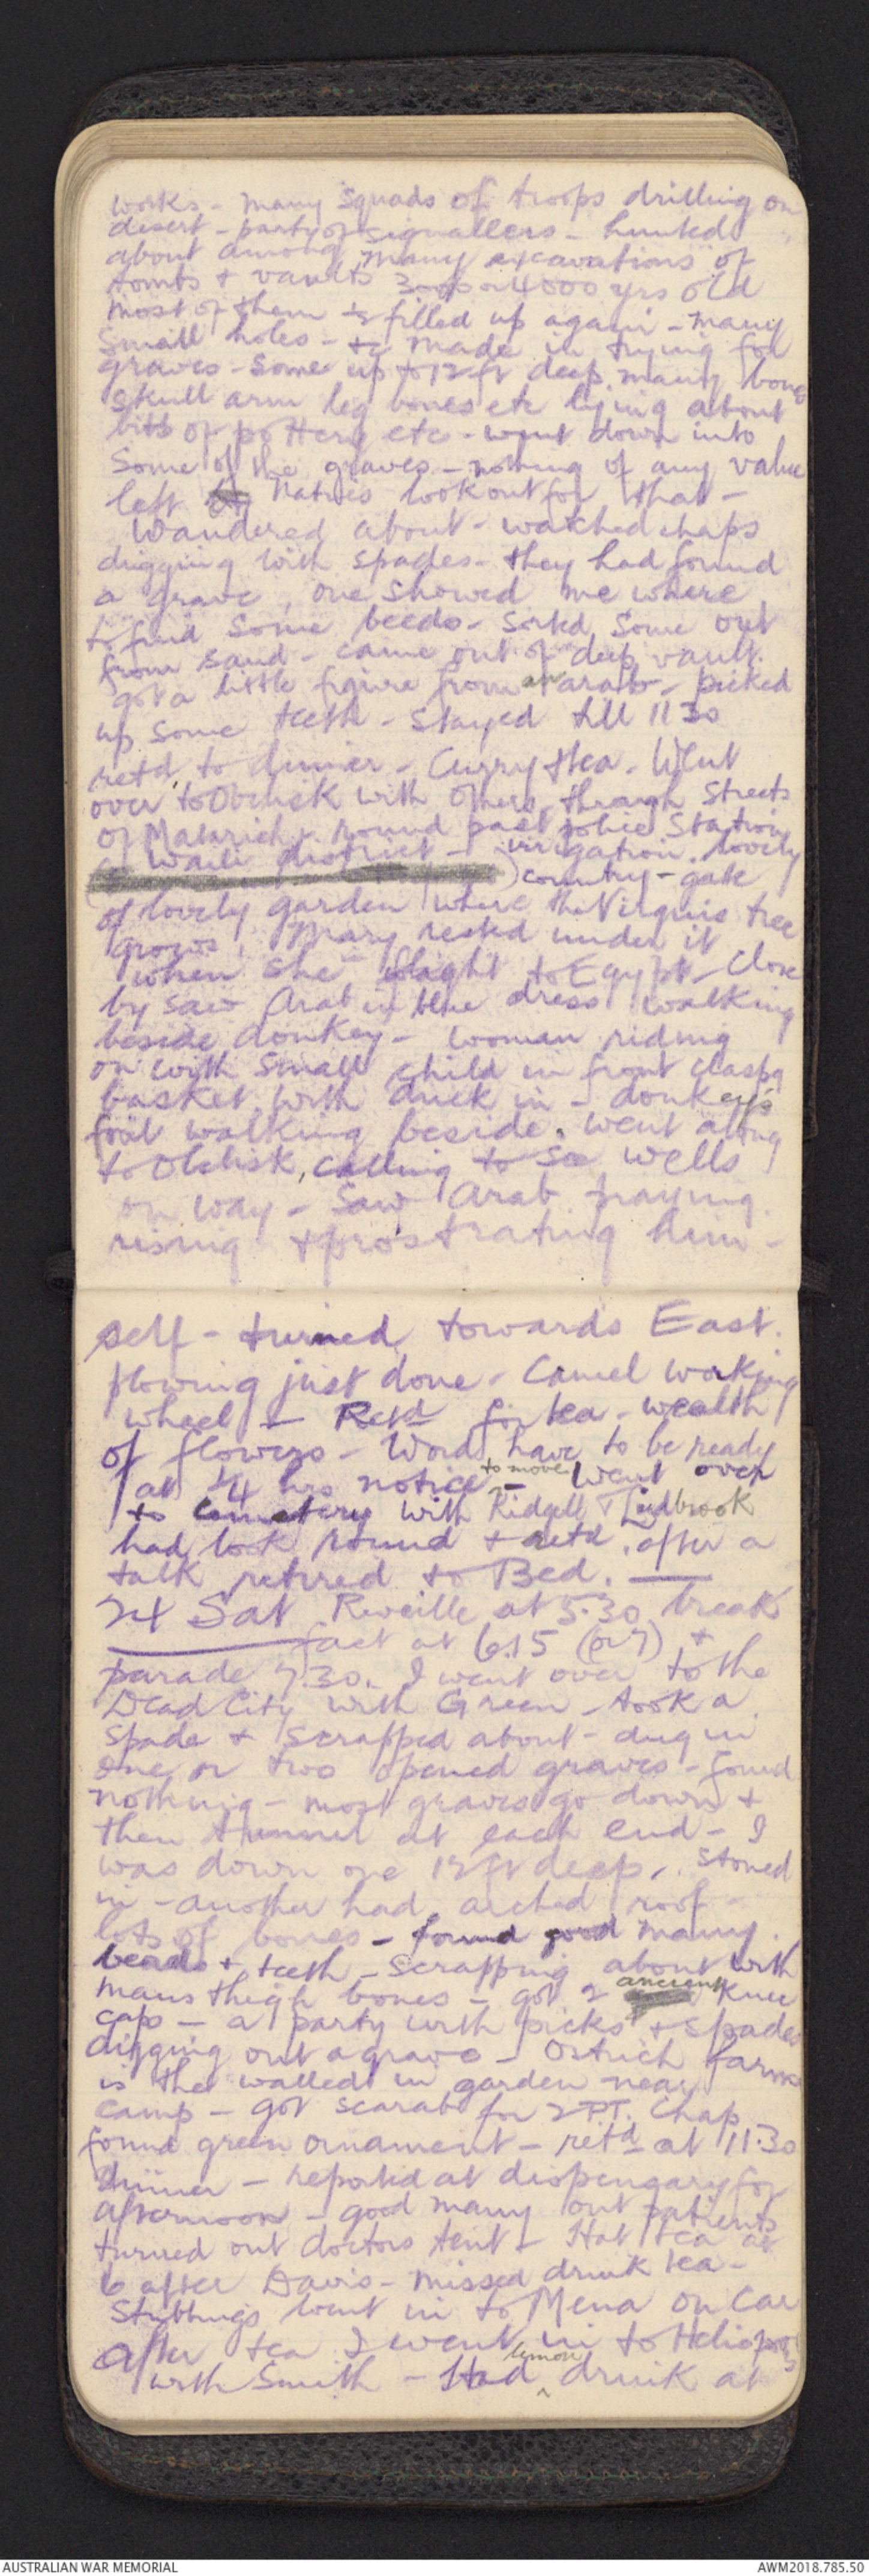 works - many squads of troops drilling on
desert - party of signallers - hunted
about among many excavations of
tombs & vaults 3 or 4000 yrs old
most of them filled up again - many
small holes - made in trying for
graves - some up to 12 ft deep, many bones
skull arm leg bones etc lying about
bits of pottery etc - went down into
some of the graves - nothing of any value
left natives look out for that -
Wandered about - watched chaps
digging with spades - they had found
a grave, one showed me where
to find some beeds - sorted some out
from sand - came out of deep vault.
got a little figure from an arab - picked
up some teeth - stayed till 11 30
retd to dinner - Curry & tea. Went
over to Obelisk with others, through streets
of Matarieh & round past police Station
Waili district - irrigation. lovely
country - gate
of lovely garden where the Virgins tree
grows, Mary rested under it
when she flight to Egypt - Close
by saw Arab in blue dress walking
beside donkey - woman riding
on with small child in front claspg
basket with duck in - donkeys
foal walking beside. went along
to Oblisk, calling to see wells
on way - Saw Arab praying.
rising & prostrating him -
self - turned towards East.
plowing just done - Camel working
wheel - Retd for tea - wealth
of flowers - Word, have to be ready
at 1/4 hrs notice to move - Went over
to Cemetery with Ridgell &
had look round & retd. after a
talk retired to Bed. —
24 Sat Reveille at 5.30 break
fast at 6.15 (or 7) &
parade 7.30. I went over to the
Dead City with Green - took a
spade & scrapped about - dug in
one or two opened graves - found
nothing - most graves go down &
then tunnel at each end - I
was down one 12 ft deep, stoned
in - another had arched roof -
lots of bones - found good many
beads & teeth - scrapping about with
mans thigh bones - got 2 ancient knee
caps - a party with picks & spades
digging out a grave - Ostrich farm
is the walled in garden near
camp - got scarab for 2 PT. Chap
found green ornament - retd at 11.30
dinner - reported at dispensary for
afternoon - good many out patients
turned out doctors tent - Hot tea at
6 after Davis - missed drunk tea -
Stubbings went in to Mena on Car
After tea I went in to Heliopolis
with Smith - Had lemon drink at
AUSTRALIAN WAR MEMORIAL
AWM2018.785.50